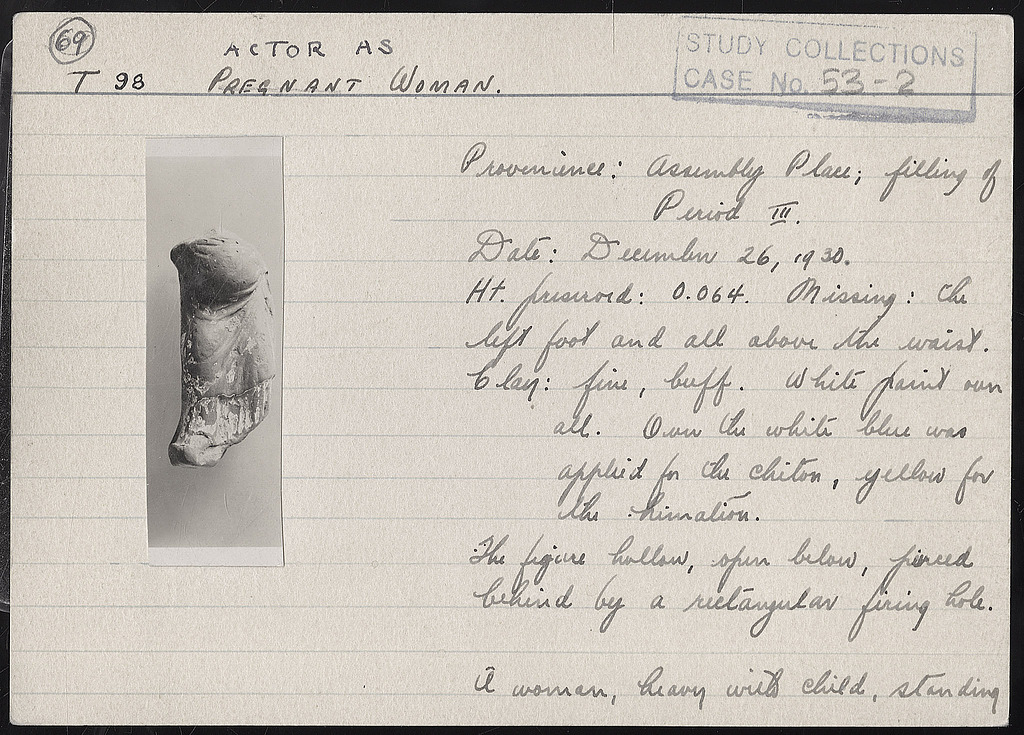 69
ACTOR AS
T 98 PREGNANT WOMAN.
STUDY COLLECTIONS
CASE No. 53-2
Provenience: Assembly Place; filling of
Period III.
Date: December 26, 1930.
Ht. preserved: 0.064. Missing: the
left foot and all above the waist.
Clay: fine, buff. White paint over
all. Over the white blue was
applied for the chiton, yellow for
the himation.
The figure hollow, open below, pierced
behind by a rectangular firing hole.
A woman, heavy with child, standing